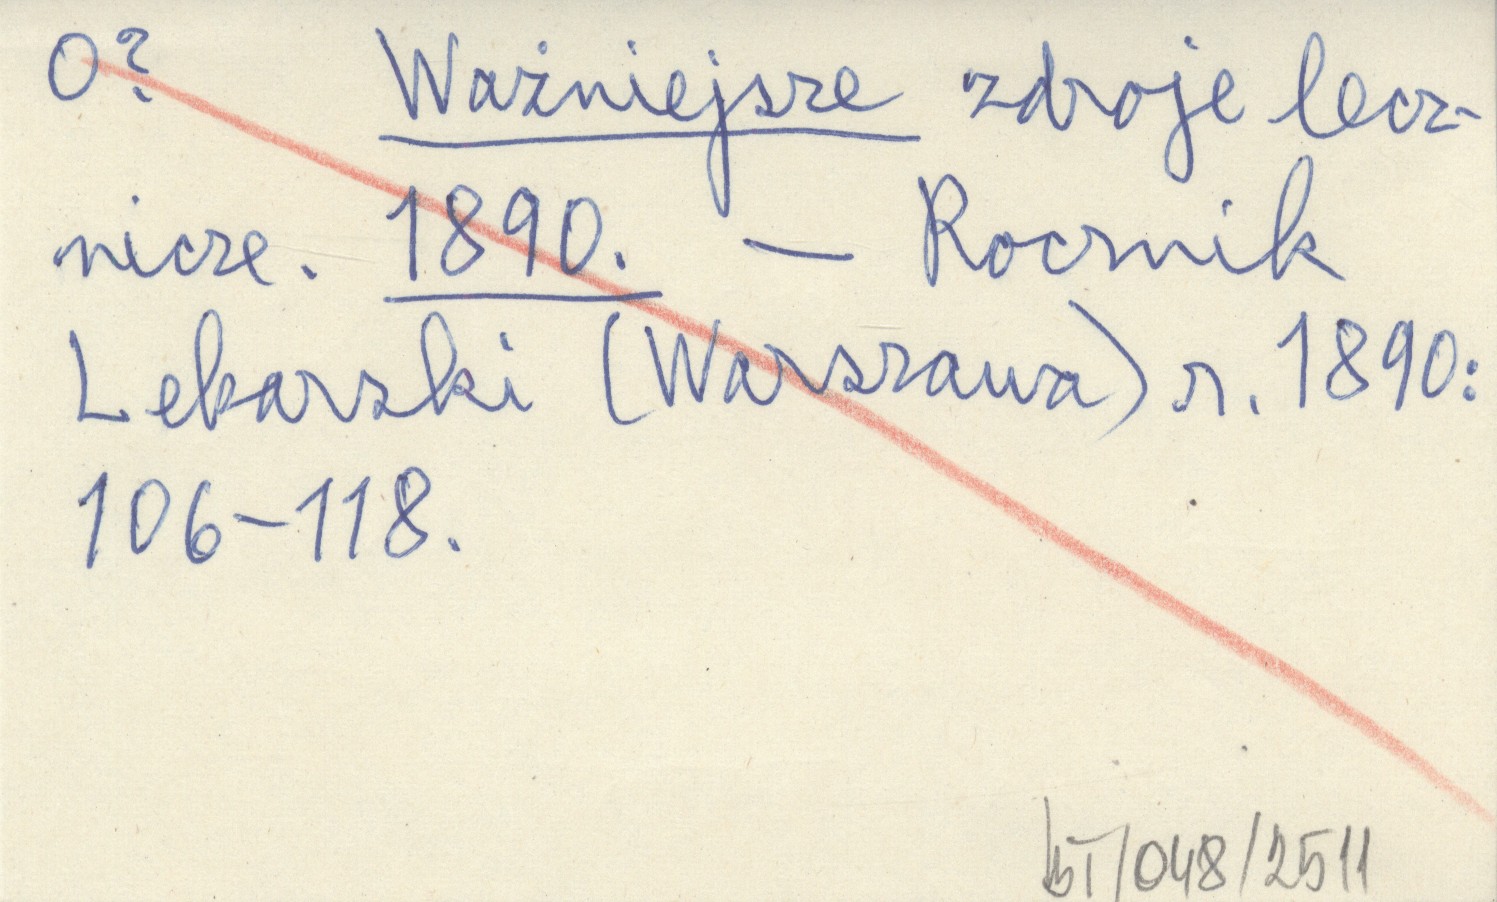 0? Ważniejsze zdroje lecz-
nicze. 1890. — Rocznik
Lekarski (Warszawa) r. 1890:
106-118.
/048/2511